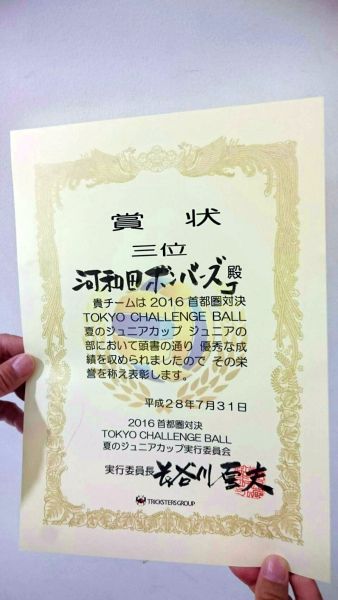 賞状
三位
河和田ボンバーズJ殿
貴チームは2016首都圏対決
TOKYO CHALLENGE BALL
夏のジュニアカップ ジュニアの
部において頭書の通り 優秀な成
績を収められましたので その栄
誉を称え表彰します。
平成28年7月31日
2016首都圏対決
TOKYO CHALLENGE BALL
夏のジュニアカップ実行委員会
実行委員長 長谷川聖夫
TRICKSTERSGROUP